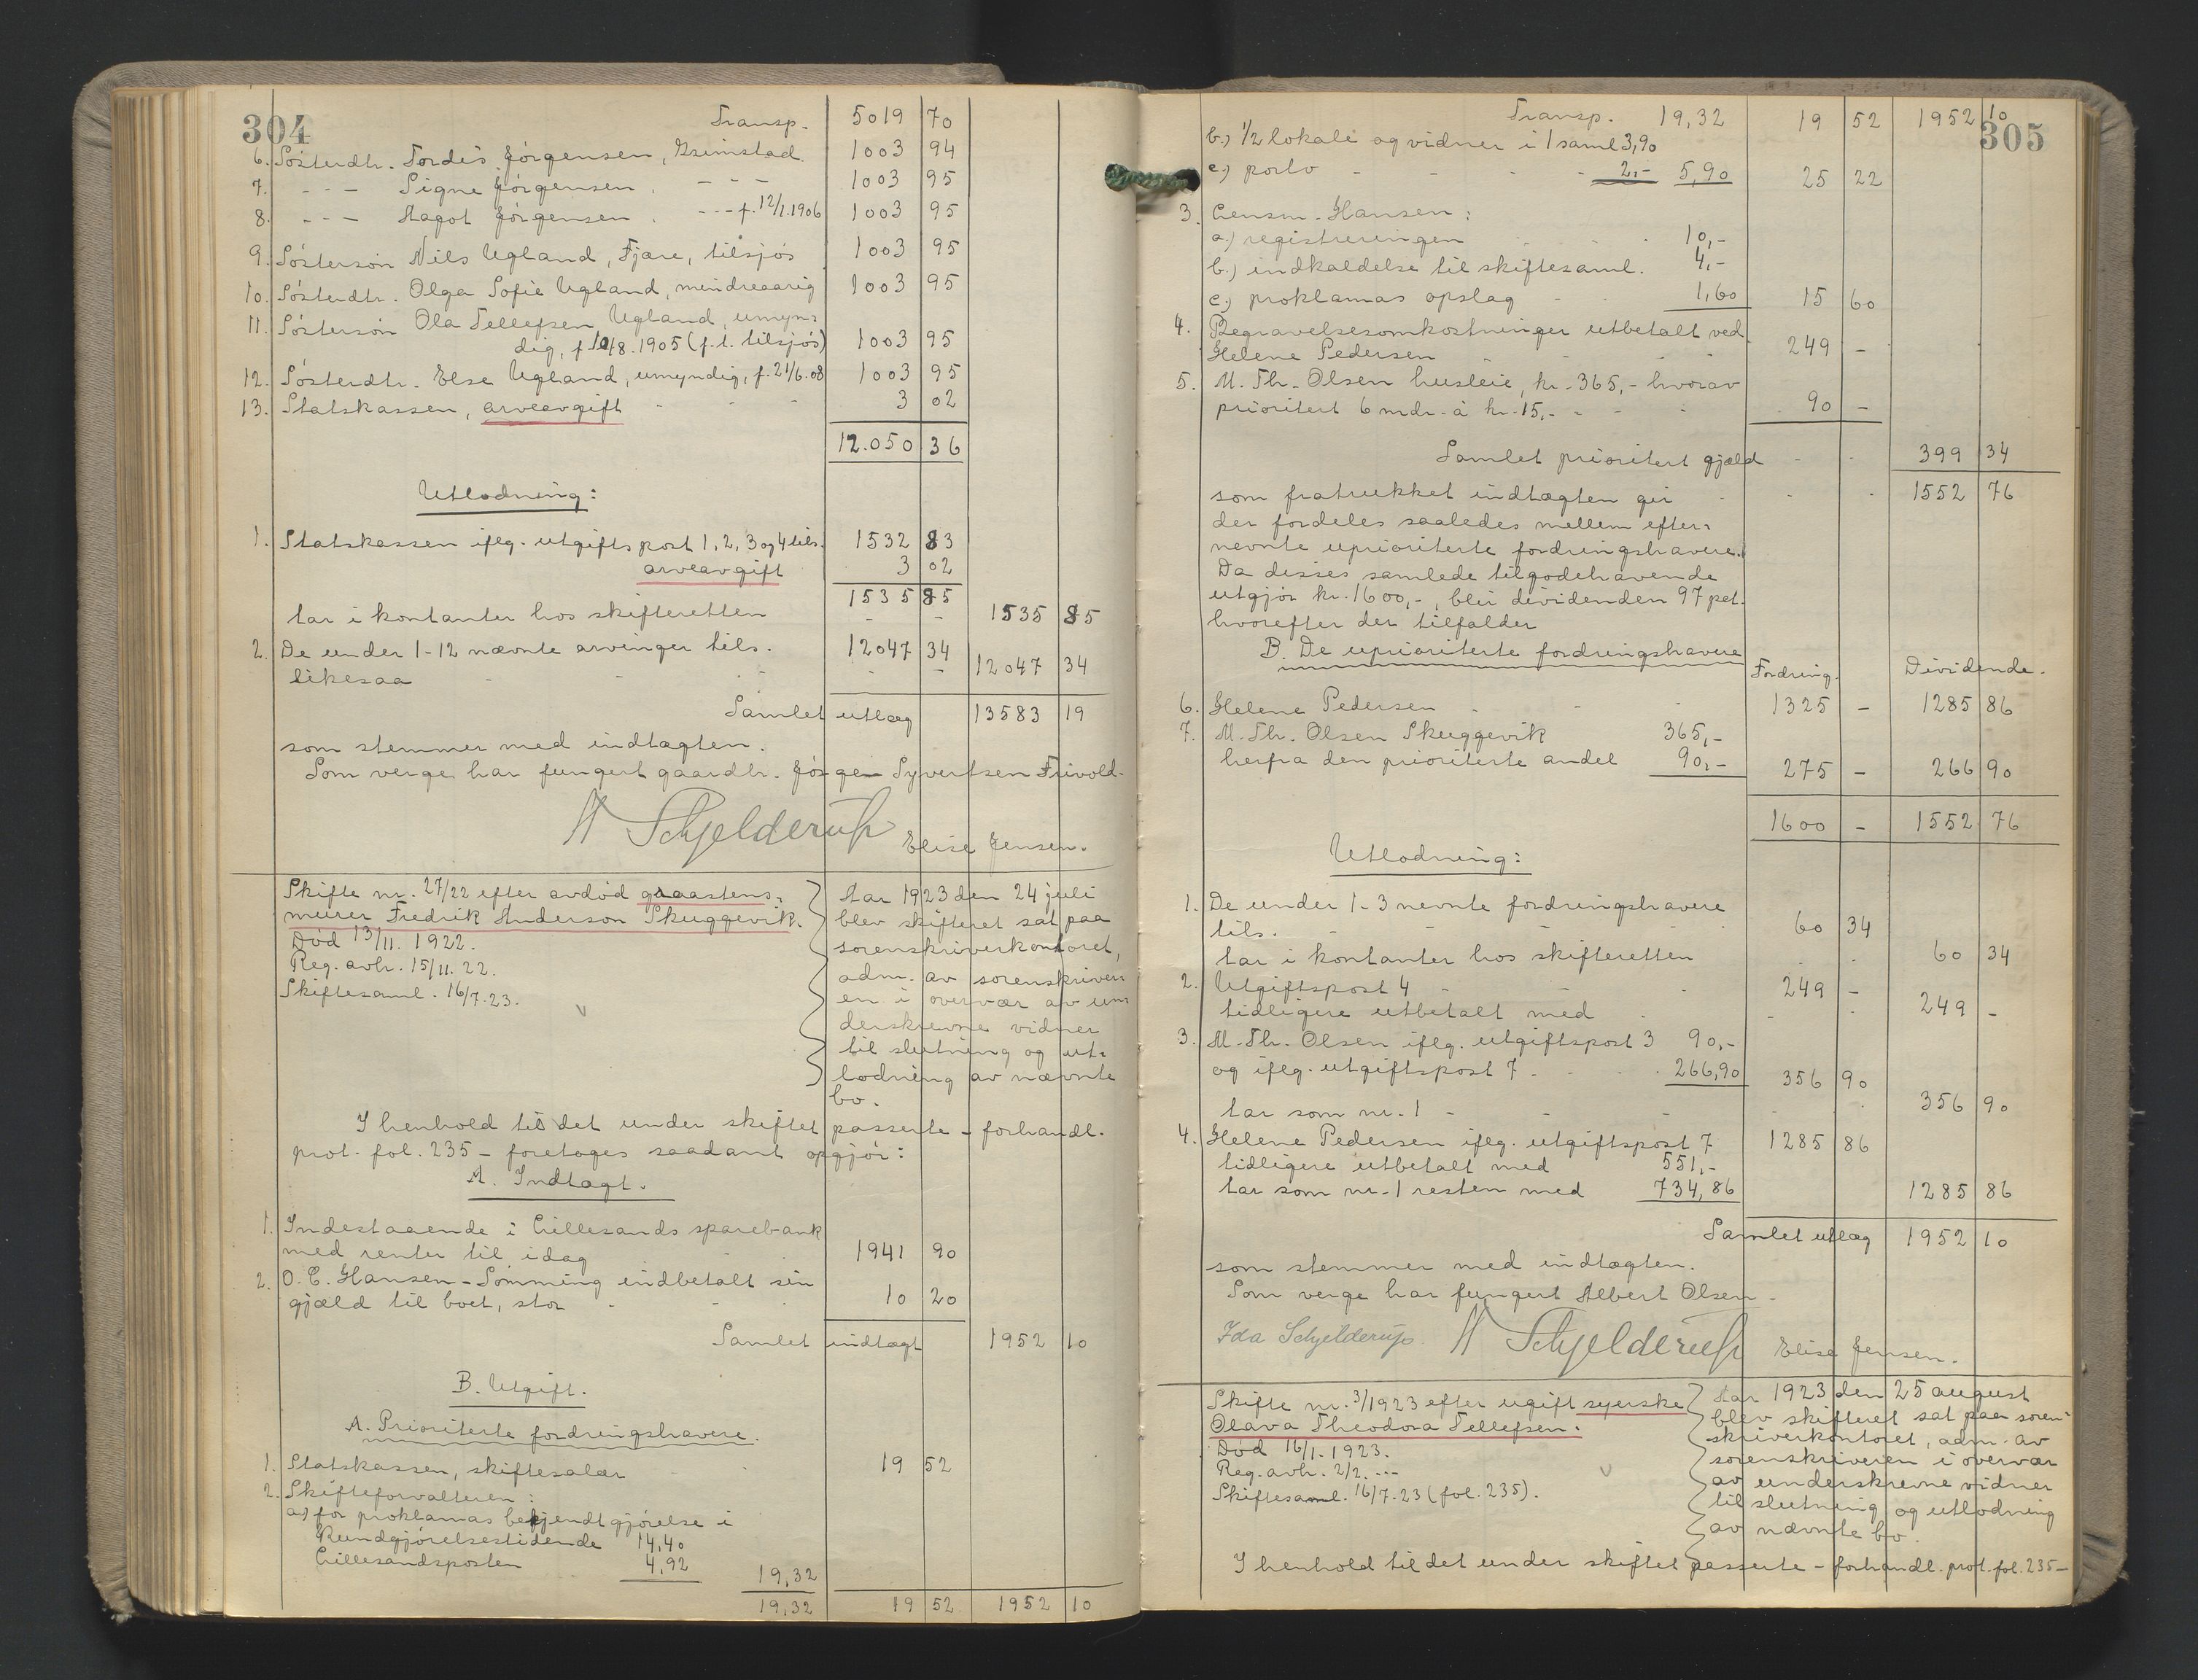 304
Transp. 5019 70
6. Søsterdtr. Tordis Jørgensen, Grimstad. 1003 94
7. - - - Signe Jørgensen, - - - 1003 95
8. - - - Aagot Jørgensen, - - - f. 12/1.1906 1003 95
9. Søstersøn Nils Ugland, Fjære, tilsjøs 1003 95
10. Søsterdtr. Olga Sofie Ugland, mindreaarig 1003 95
11. Søstersøn Ola Tellefsen Ugland, umyn=
dig, f. 10/8.1905 (f.t. tilsjøs) 1003 95
12. Søsterdtr. Else Ugland, umyndig, f. 21/6.08 1003 95
13. Statskassen, arveavgift - - - 3 02
12.050 36
Utlodning:
1. Statskassen iflg. utgiftspost 1, 2, 3 og 4 tils. 1532 83
arveavgift 3 02
1535 85
tar i kontanter hos skifteretten - - 1535 85
2. De under 1-12 nævnte arvinger tils. 12047 34
likesaa - - - - - 12047 34
Samlet utlæg 13583 19
som stemmer med indtægten.
Som verge har fungert gaardbr. Jørgen Syvertsen Frivold.
A Schjelderup Elise Jensen.
Skifte nr. 27/22 efter avdød graastens=
murer Fredrik Anderson Skuggevik.
Død 13/11. 1922.
Reg. avh. 15/11. 22.
Skiftesaml. 16/7. 23.
Aar 1923 den 24 juli
blev skifteret sat paa
sorenskriverkontoret,
adm. av sorenskriver=
en i overvær av un=
derskrevne vidner
til slutning og ut=
lodning av nævnte
bo.
I henhold til det under skiftet passerte - forhandl.
prot. fol. 235 - foretages saadant opgjør:
A. Indtægt.
1. Indestaaende i Lillesands sparebank
med renter til idag - - 1941 90
2. O. C. Hansen - Sømming indbetalt sin
gjæld til boet, stor - - - 10 20
Samlet indtægt 1952 10
B. Utgift.
A. Prioriterte fordringshavere.
1. Statskassen, skiftesalær - - 19 52
2. Skifteforvalteren:
a) for proklamas bekjendtgjørelse i
Kundgjørelsestidende 14,40
Lillesandsposten 4,92 19,32
19,32 19 52 1952 10
305
Transp. 19,32 19 52 1952 10
b.) 1/2 lokale og vidner i 1 saml 3,90
c.) porto - - - - 2,- 5,90 25 22
3. Lensm. Hansen:
a.) registreringen - - - 10,-
b.) indkaldelse til skiftesaml. 4,-
c.) proklamas opslag - - 1,60 15 60
4. Begravelsesomkostninger utbetalt ved
Helene Pedersen - - - - 249 -
5. M. Th. Olsen husleie, kr. 365,- hvorav
prioritert 6 mdr. à kr. 15,- - - 90 -
Samlet prioritert gjæld - - 399 34
som fratrukket indtægten gir - - - 1552 76
der fordeles saaledes mellem efter=
nevnte uprioriterte fordringshavere.
Da disses samlede tilgodehavende
utgjør kr. 1600,-, blir dividenden 97 pct.
hvorefter der tilfalder
B. De uprioriterte fordringshavere
Fordring. Dividende.
6. Helene Pedersen - - - 1325 - 1285 86
7. M. Th. Olsen Skuggevik 365,-
herfra den prioriterte andel 90,- 275 - 266 90
1600 - 1552 76
Utlodning:
1. De under 1-3 nevnte fordringshavere
tils. - - - - - 60 34
tar i kontanter hos skifteretten - - 60 34
2. Utgiftspost 4 - - - 249 -
tidligere utbetalt med - - - 249 -
3. M. Th. Olsen iflg. utgiftspost 3 90,-
og iflg. utgiftspost 7 - - - 266,90 356 90
tar som nr. 1 - - - - - 356 90
4. Helene Pedersen iflg. utgiftspost 7 1285 86
tidligere utbetalt med 551,-
tar som nr. 1 resten med 734,86 1285 86
Samlet utlæg 1952 10
som stemmer med indtægten.
Som verge har fungert Albert Olsen.
Ida Schjelderup. A Schjelderup Elise Jensen.
Skifte nr. 3/1923 efter ugift syerske
Olava Theodora Tellefsen.
Død 16/1. 1923.
Reg. avh. 2/2. ---
Skiftesaml. 16/7. 23 (fol. 235).
Aar 1923 den 25 august
blev skifteret sat paa soren=
skriverkontoret, adm. av
sorenskriveren i overvær
av underskrevne vidner
til slutning og utlodning
av nævnte bo.
I henhold til det under skiftet passerte - forhandl. prot. fol. 235 -